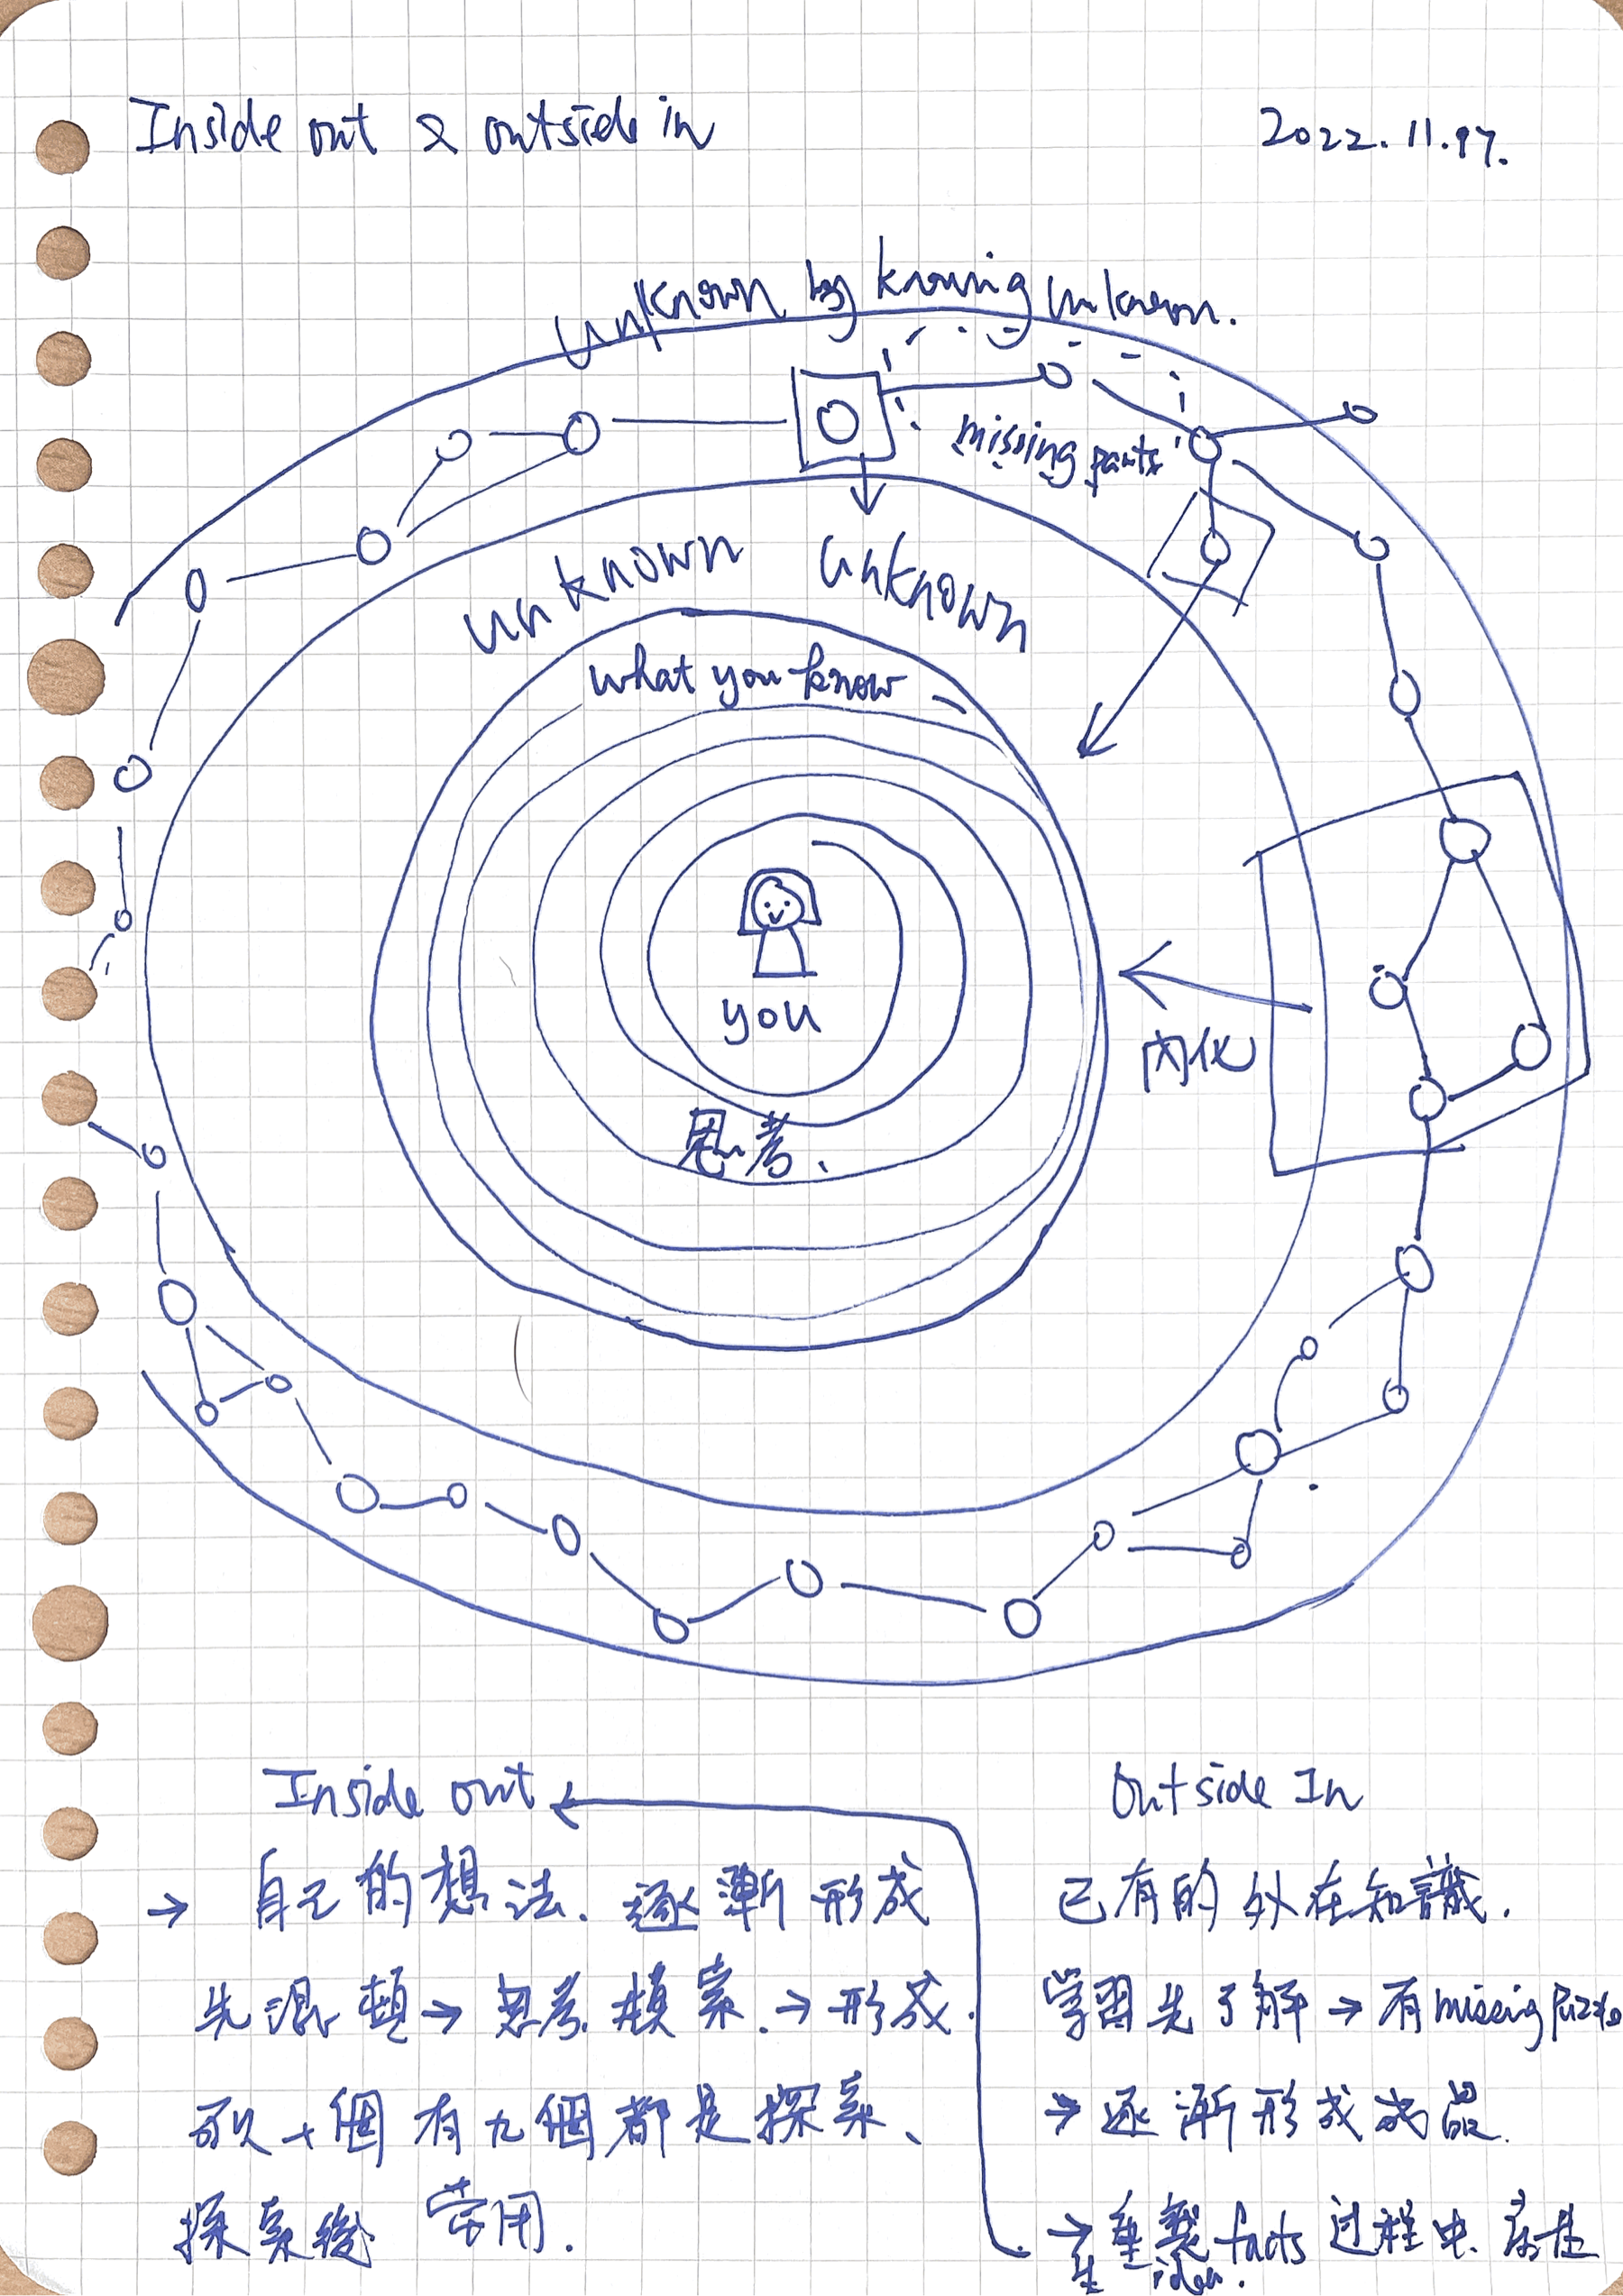 Inside out & outside in
2022.11.17.
Unknown by knowing unknown.
missing parts
unknown unknown
what you know
you
思考、
內化
Inside out
→ 自己的想法、逐漸形成
先混頓→思考、摸索、→形成、
可以十個有九個都是探索、
探索後 常用.
Outside In
已有的外在知識.
學習先了解→有missing puzzle
→逐漸形成成品
→重製facts过程中、
idea.